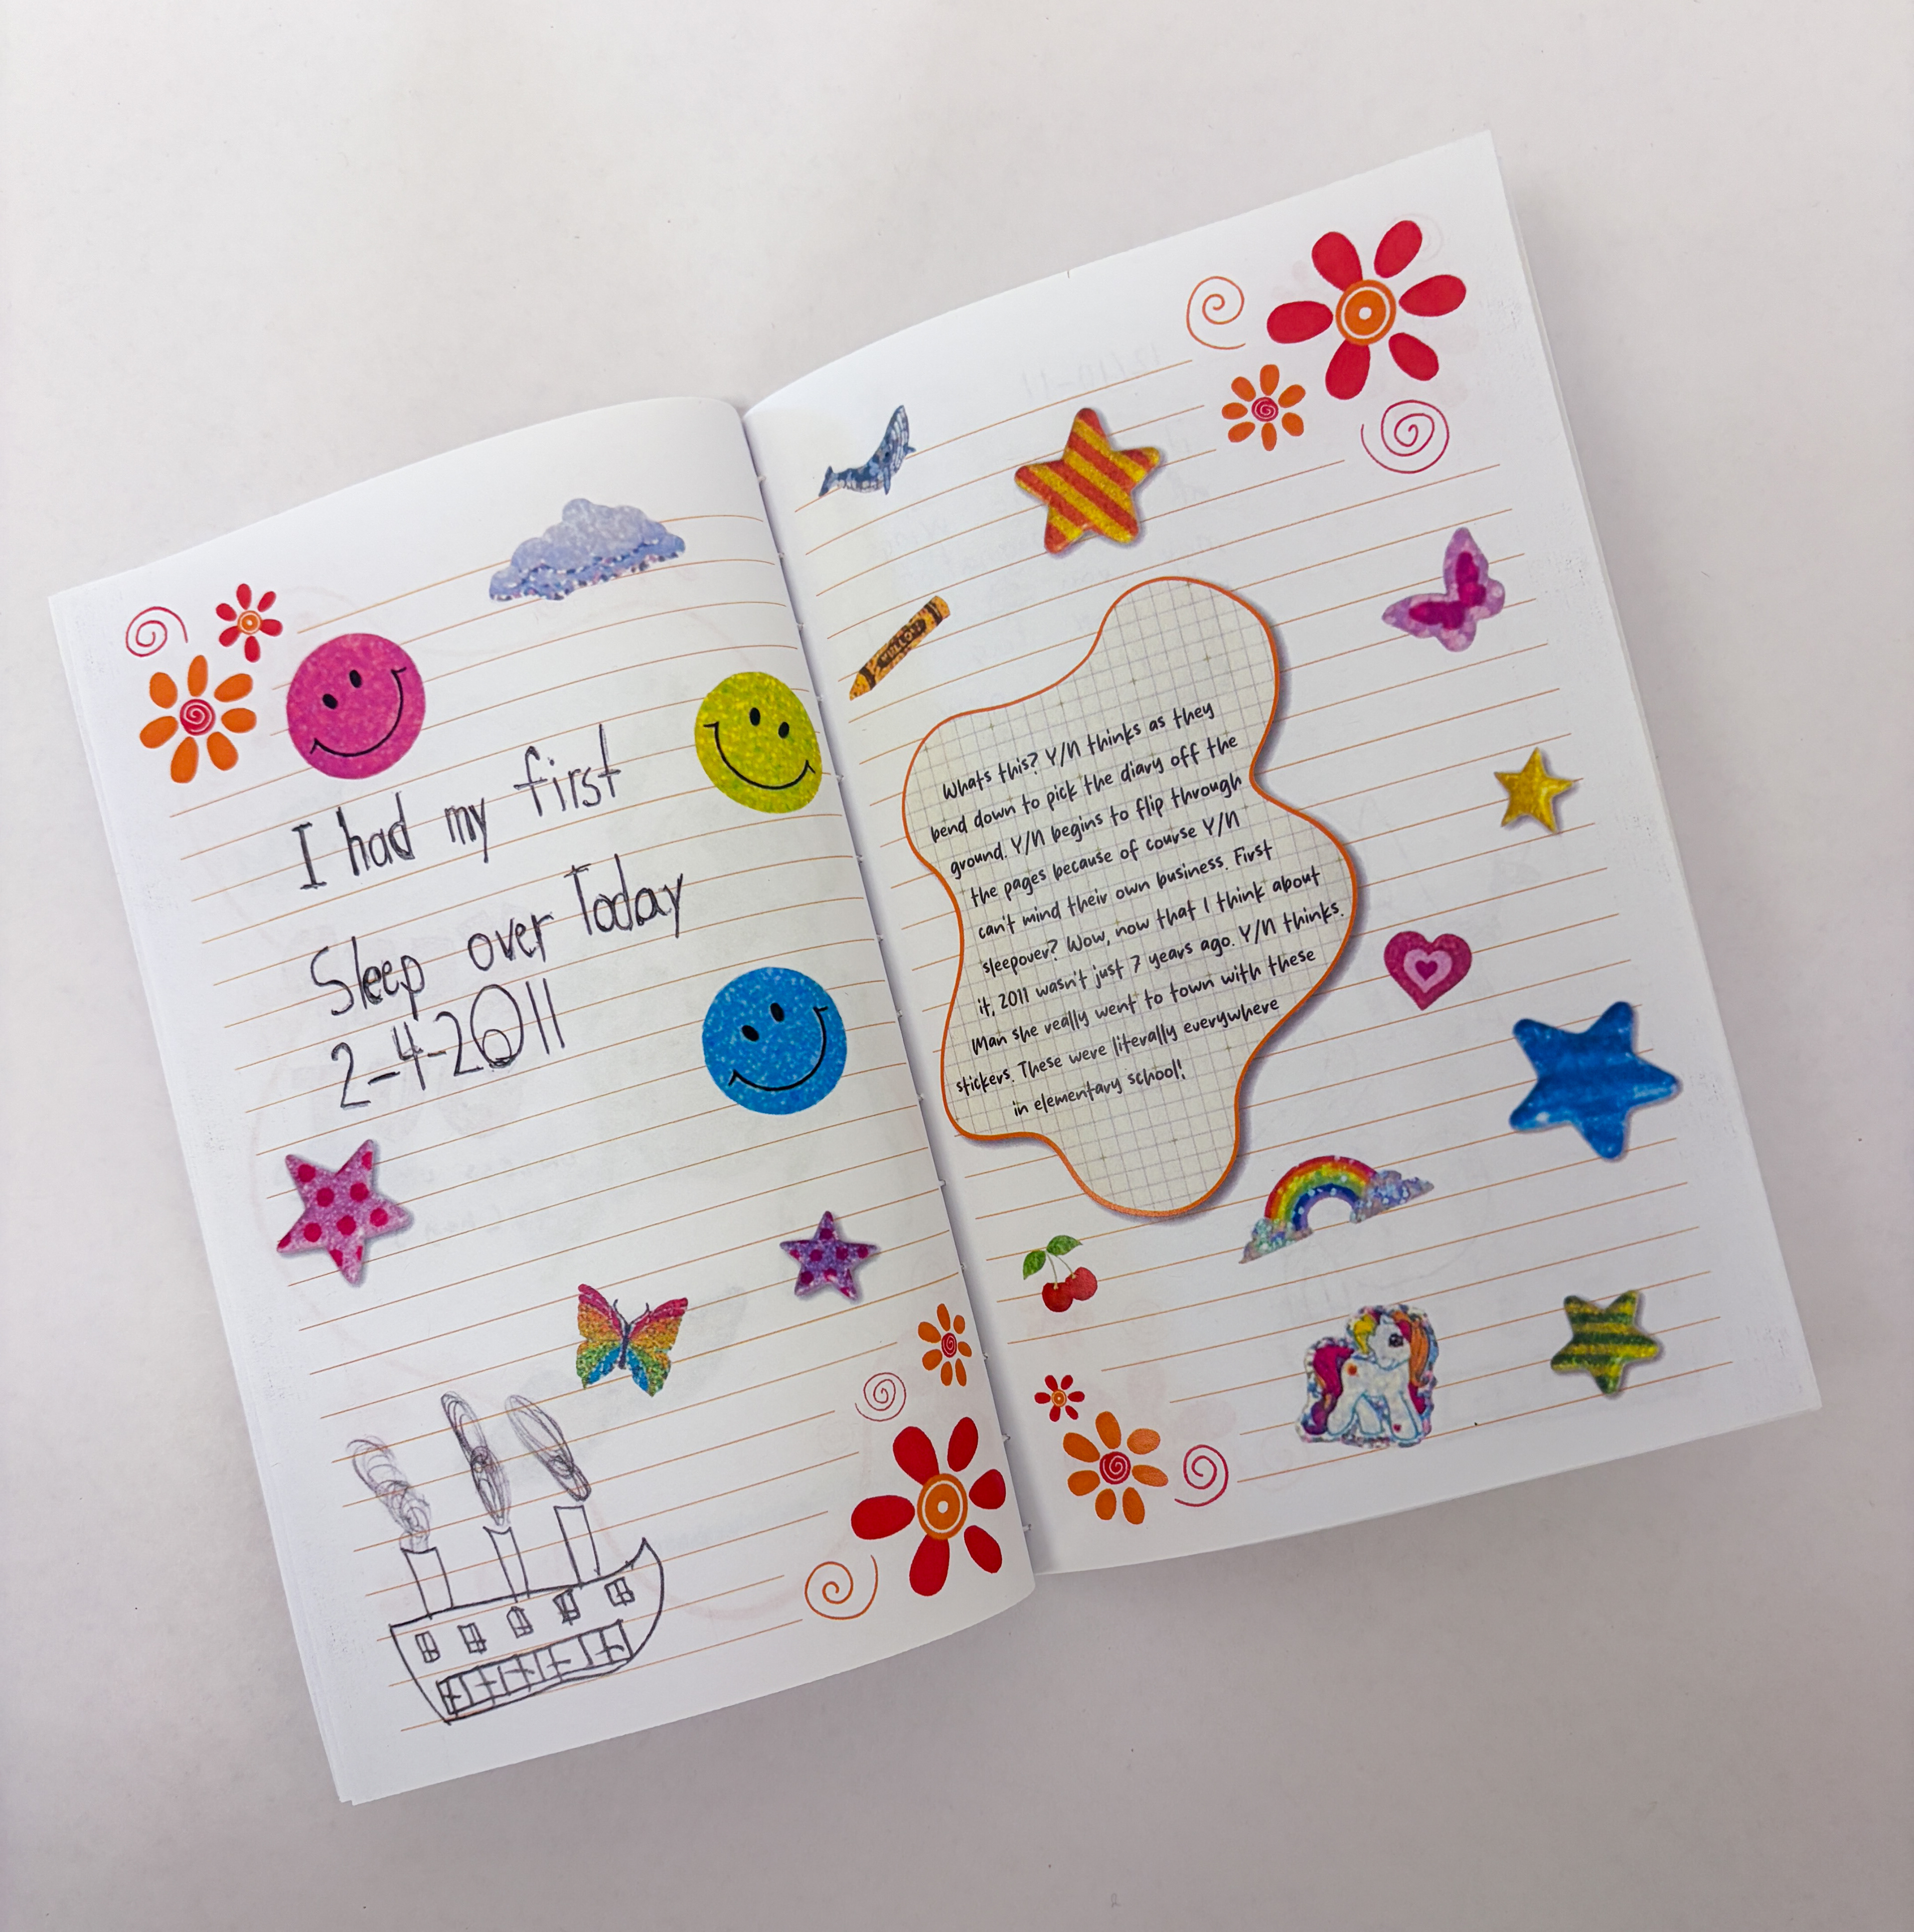 I had my first
Sleep over Today
2-4-2011
Whats this? Y/N thinks as they
bend down to pick the diary off the
ground. Y/N begins to flip through
the pages because of course Y/N
can't mind their own business. First
sleepover? Wow, now that I think about
it, 2011 wasn't just 7 years ago. Y/N thinks.
Man she really went to town with these
stickers. These were literally everywhere
in elementary school!